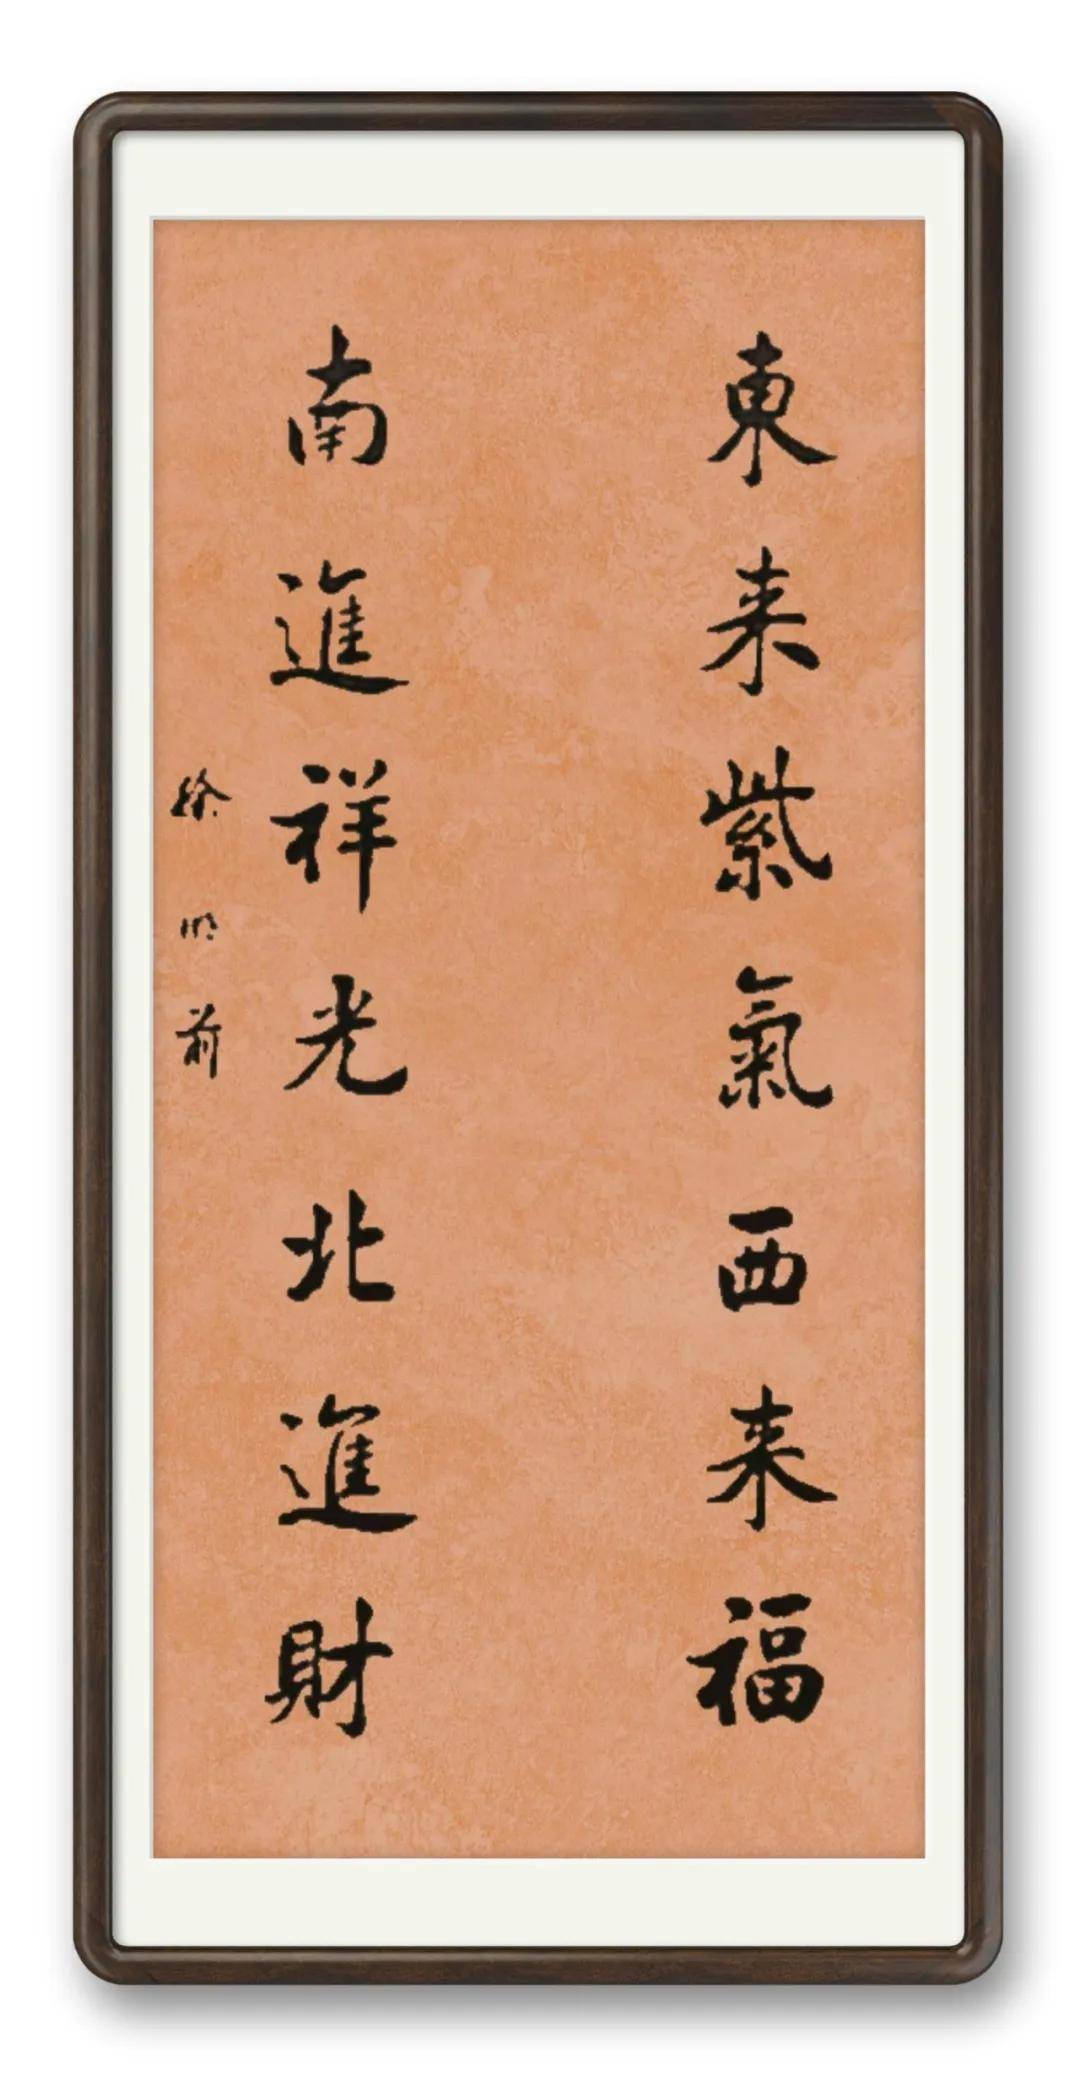 東来紫氣西来福
南進祥光北進財
徐明前